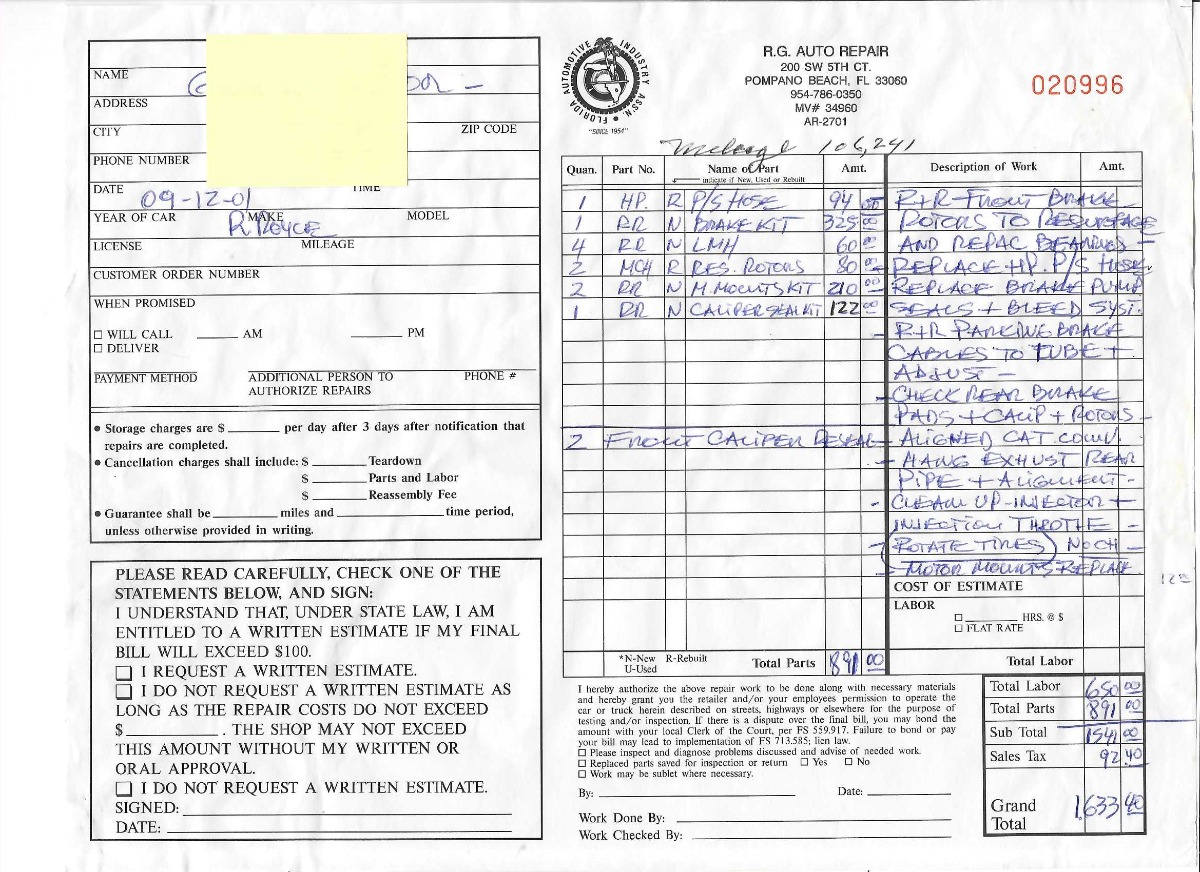 NAME
ADDRESS
CITY ZIP CODE
PHONE NUMBER
DATE 09-12-01 TIME
YEAR OF CAR MAKE R ROYCE MODEL
LICENSE MILEAGE
CUSTOMER ORDER NUMBER
WHEN PROMISED
☐ WILL CALL ______ AM ______ PM
☐ DELIVER
PAYMENT METHOD ADDITIONAL PERSON TO AUTHORIZE REPAIRS PHONE #
• Storage charges are $ ______ per day after 3 days after notification that
repairs are completed.
• Cancellation charges shall include: $ ______ Teardown
$ ______ Parts and Labor
$ ______ Reassembly Fee
• Guarantee shall be ______ miles and ______ time period,
unless otherwise provided in writing.
PLEASE READ CAREFULLY, CHECK ONE OF THE
STATEMENTS BELOW, AND SIGN:
I UNDERSTAND THAT, UNDER STATE LAW, I AM
ENTITLED TO A WRITTEN ESTIMATE IF MY FINAL
BILL WILL EXCEED $100.
☐ I REQUEST A WRITTEN ESTIMATE.
☐ I DO NOT REQUEST A WRITTEN ESTIMATE AS
LONG AS THE REPAIR COSTS DO NOT EXCEED
$ ______ . THE SHOP MAY NOT EXCEED
THIS AMOUNT WITHOUT MY WRITTEN OR
ORAL APPROVAL.
☐ I DO NOT REQUEST A WRITTEN ESTIMATE.
SIGNED:
DATE:
FLORIDA AUTOMOTIVE INDUSTRY ASS'N.
"SINCE 1954"
R.G. AUTO REPAIR
200 SW 5TH CT.
POMPANO BEACH, FL 33060
954-786-0350
MV# 34960
AR-2701
020996
Mileage 106,241
Quan. Part No. Name of Part Amt. Description of Work Amt.
indicate if New, Used or Rebuilt
1 HP. R P/S HOSE 94 00 R+R FRONT BRAKE
1 RR N BRAKE KIT 325 00 ROTORS TO RESURFACE
4 RR N LMH 60 00 AND REPAC BEARINGS -
2 MCH R RES. ROTORS 80 00 - REPLACE HP. P/S HOSE
2 RR N M. MOUNTS KIT 210 00 REPLACE BRAKE PUMP
1 RR N CALIPER SEAL KIT 122 00 SEALS + BLEED SYST.
- R+R PARKING BRAKE
CABLES TO TUBE +
ADJUST -
- CHECK REAR BRAKE
PADS + CALIP + ROTORS -
2 FRONT CALIPER RESEAL - ALIGNED CAT. CONV.
- HANG EXHUST REAR
PIPE + ALIGNMENT -
- CLEAN UP-INJECTOR +
INJECTION THROTHE -
- ROTATE TIRES) NO CH -
- MOTOR MOUNTS REPLACE
COST OF ESTIMATE
LABOR
☐ ______ HRS. @ $
☐ FLAT RATE
*N-New R-Rebuilt
U-Used
Total Parts 891 00 Total Labor
I hereby authorize the above repair work to be done along with necessary materials
and hereby grant you the retailer and/or your employees permission to operate the
car or truck herein described on streets, highways or elsewhere for the purpose of
testing and/or inspection. If there is a dispute over the final bill, you may bond the
amount with your local Clerk of the Court, per FS 559.917. Failure to bond or pay
your bill may lead to implementation of FS 713.585; lien law.
☐ Please inspect and diagnose problems discussed and advise of needed work.
☐ Replaced parts saved for inspection or return ☐ Yes ☐ No
☐ Work may be sublet where necessary.
By: Date:
Work Done By:
Work Checked By:
Total Labor 650 00
Total Parts 891 00
Sub Total 1541 00
Sales Tax 92 40
Grand Total 1,633 40